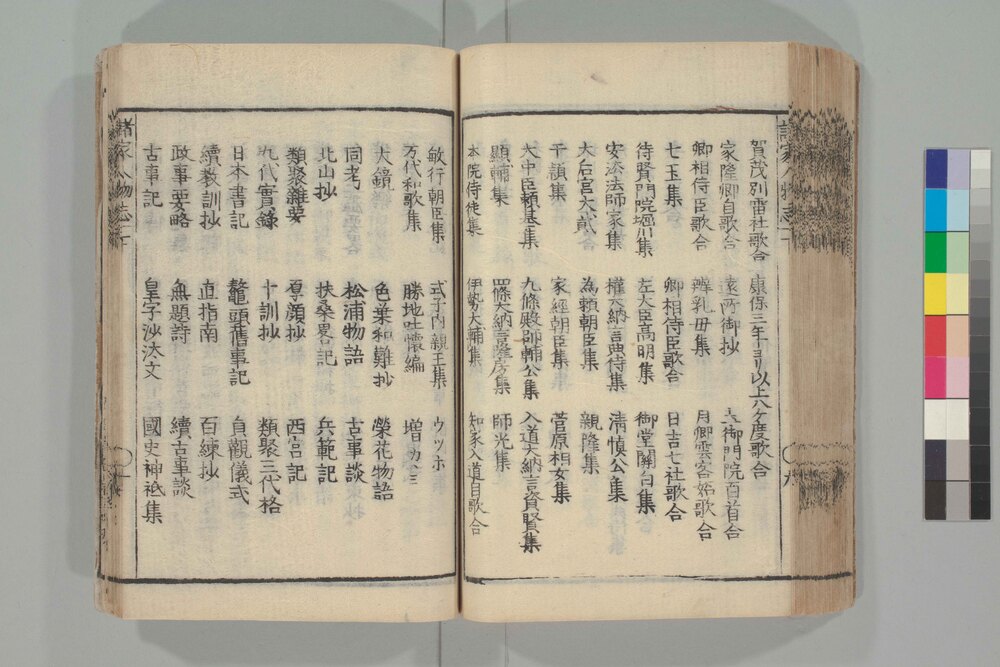 賀茂別雷社歌合 康保三年ヨリ以上八ケ度歌合
家隆卿自歌合 遠所御抄 土御門院百首合
卿相侍臣歌合 辨乳母集 月卿雲客妬歌合
七玉集 卿相侍臣歌合 日吉七社歌合
待賢門院堀川集 左大臣高明集 御堂關白集
安法法師家集 權大納言典侍集 清慎公集
大后宮大貳 為頼朝臣集 親隆集
千頴集 家經朝臣集 菅原相女集
大中臣頼基集 九條殿師輔公集 入道大納言資賢集
顯輔集 四條大納言隆房集 師光集
本院侍従集 伊勢大輔集 知家入道自歌合
敏行朝臣集 式子内親王集 ウツホ
万代和歌集 勝地吐懐編 増カヽミ
大鏡 色葉和難抄 榮花物語
同考 松浦物語 古事談
北山抄 扶桑畧記 兵範記
類聚雜要 厚顔抄 西宮記
九代實録 十訓抄 類聚三代格
日本書記 鼇頭舊事記 貞觀儀式
續教訓抄 直指南 百練抄
政事要略 無題詩 續古事談
古事記 皇字沙汰文 國史神祗集
諸家人物志